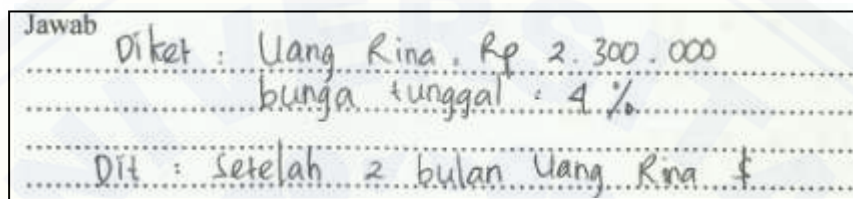 Jawab
Diket : Uang Rina : Rp 2.300.000
bunga tunggal : 4 %
Dit : Setelah 2 bulan Uang Rina